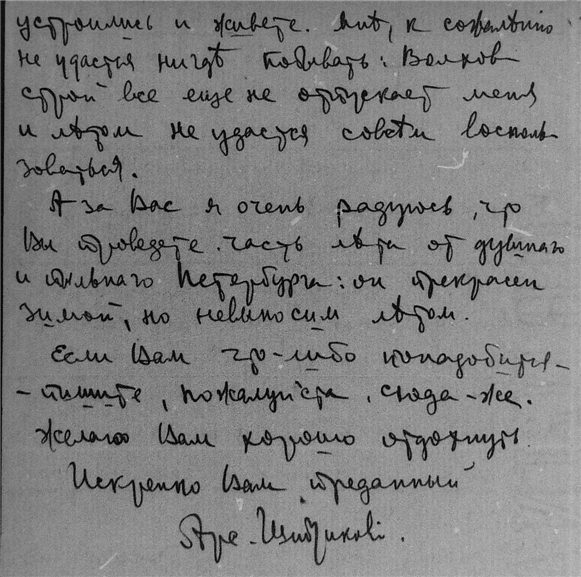 устроились и живете. Мнѣ, к сожалѣнію
не удастся нигдѣ побывать: Волхов-
строй все еще не отпускает меня
и лѣтом не удастся совсѣм восполь-
зоваться.
А за Вас я очень радуюсь, что
Вы проведете часть лѣта от душнаго
и пыльнаго Петербурга: он прекрасен
зимой, но невыносим лѣтом.
Если Вам что-либо понадобится -
- пишите, пожалуйста, сюда-же.
Желаю Вам хорошо отдохнуть.
Искренно Вам преданный